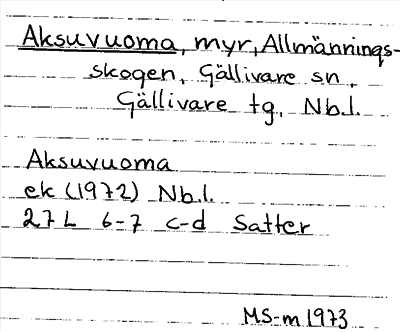 Aksuvuoma, myr, Allmännings-
skogen, Gällivare sn,
Gällivare tg, Nb.l.
Aksuvuoma
ek (1972) Nb.l.
27L 6-7 c-d Satter
MS-m 1973